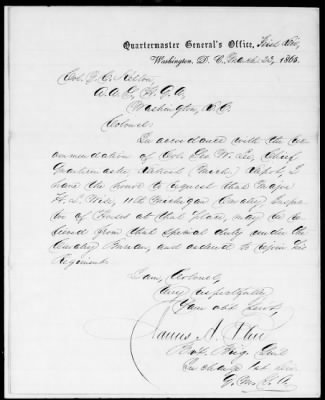 Quartermaster General's Office, First Div,
Washington, D. C. March 23, 1865.
Col. J. C. Kelton
A. A. G., H. Q. A,
Washington, D. C.
Colonel:
In accordance with the recom-
mendation of Col. Geo. W. Lee, Chief
Quartermaster Detroit (Mich.) Depot, I
have the honor to request that Major
H. L. Wise, 11th Michigan Cavalry Inspec-
tor of Horses at that place, may be re-
lieved from that special duty under the
Cavalry Bureau, and ordered to rejoin his
Regiment.
I am, Colonel,
Very respectfully
Your obt Servt,
James A. Ekin
Bvt. Brig. Genl
In charge 1st Div.
Q. M. G. O.